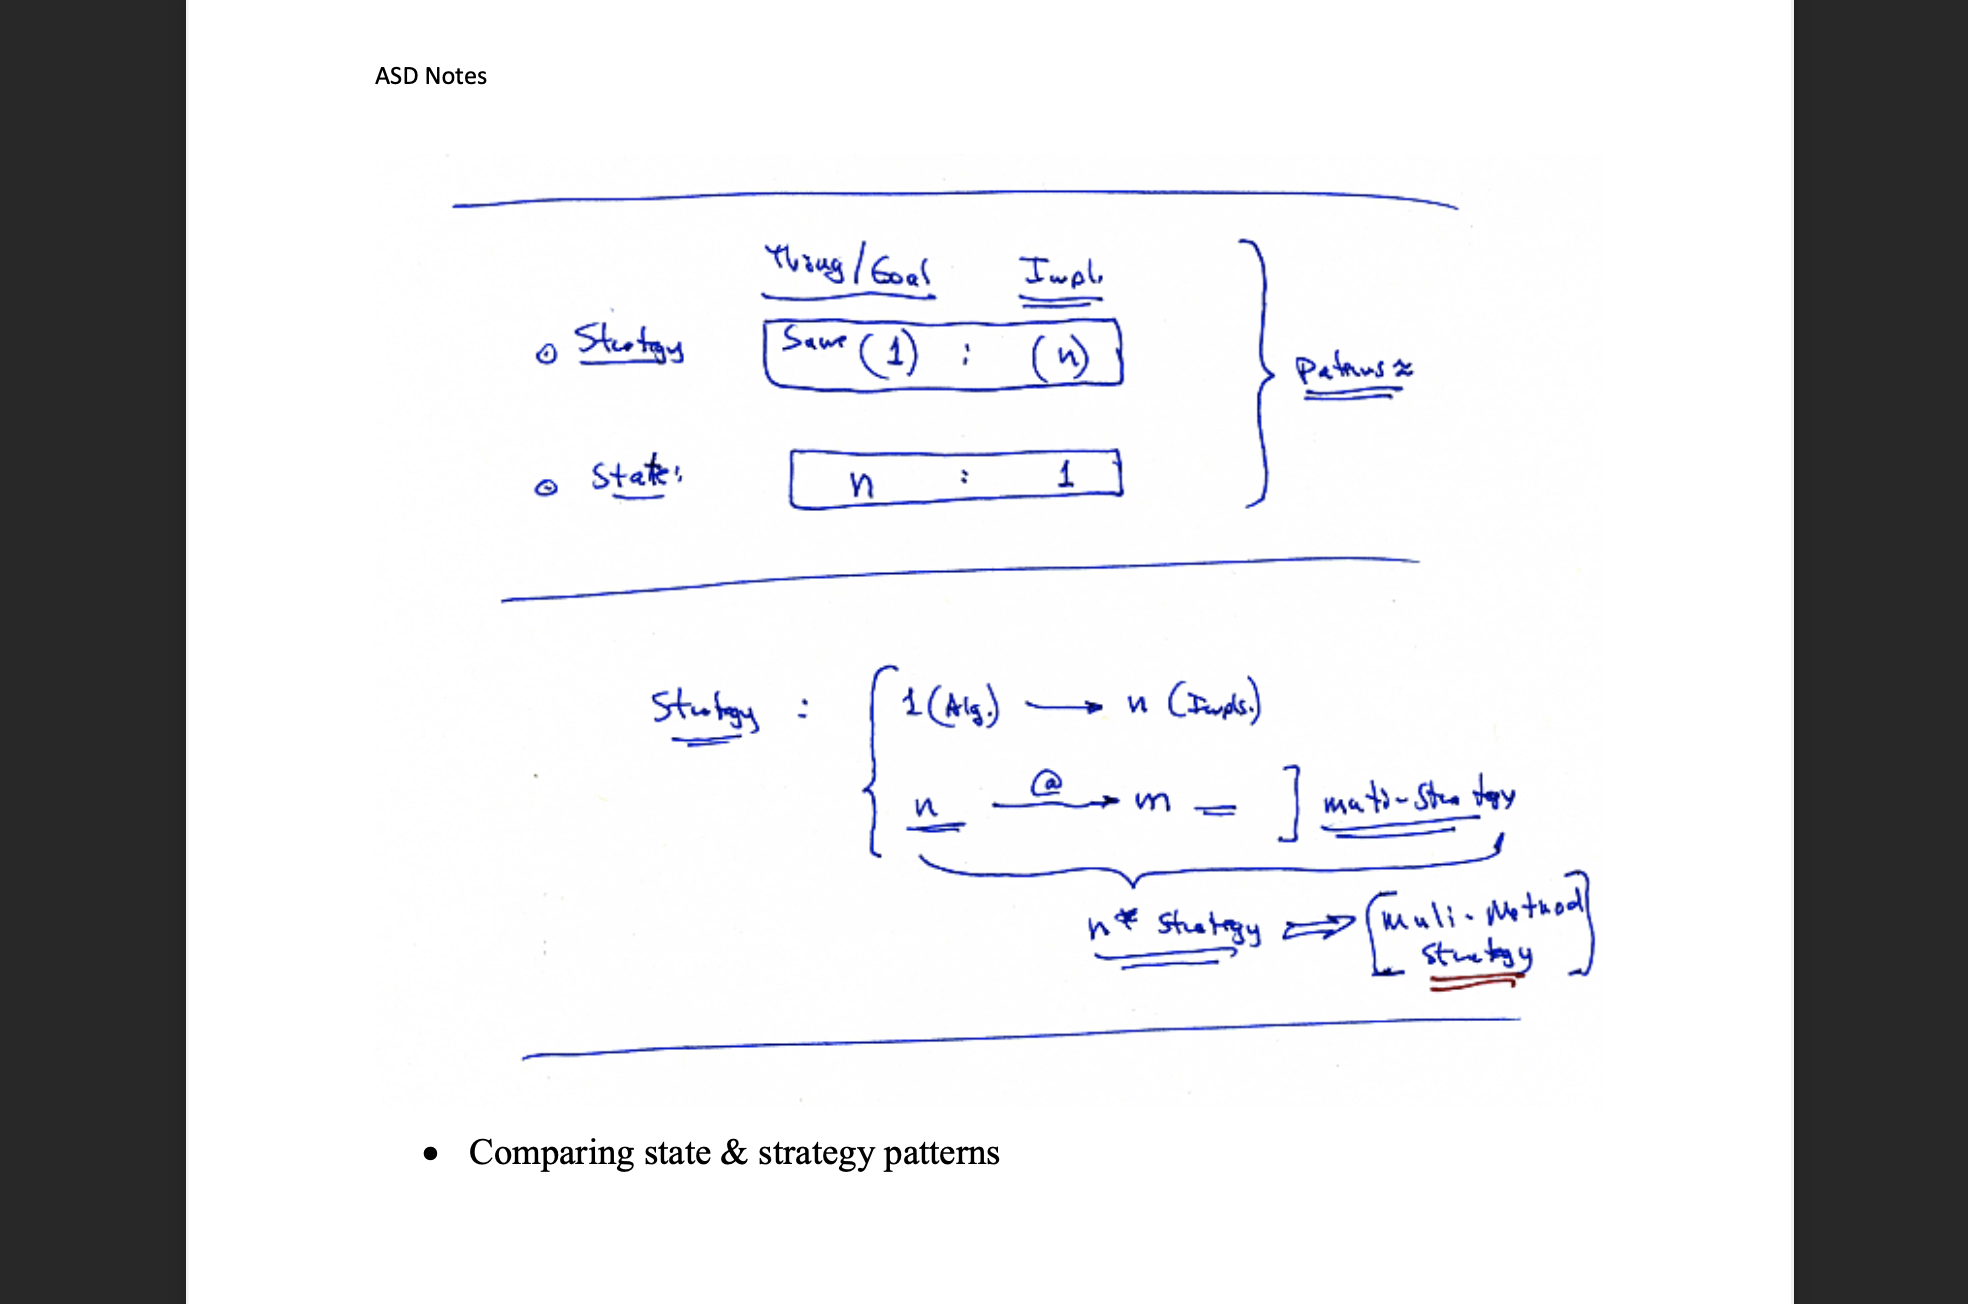 ASD Notes
Thing/Goal Impl.
Strategy Same (1) : (n)
Patterns ≈
State: n : 1
Strategy : 1 (Alg.) → n (Impls.)
n @ → m = ] multi-Strategy
n* Strategy ⇒ [Muli-Method
Strategy]
• Comparing state & strategy patterns